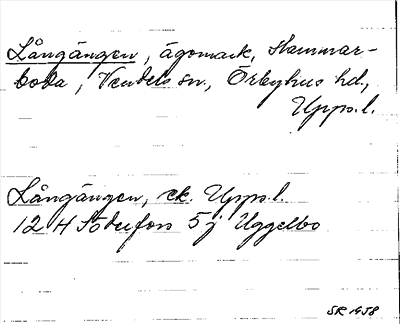 Långängen, ägomark, Hammar-
boda, Vendels sn., Örbyhus hd.,
Upps.l.
Långängen, ek. Upps.l.
12 H Söderfors 5 j Uggelbo
SR 1958